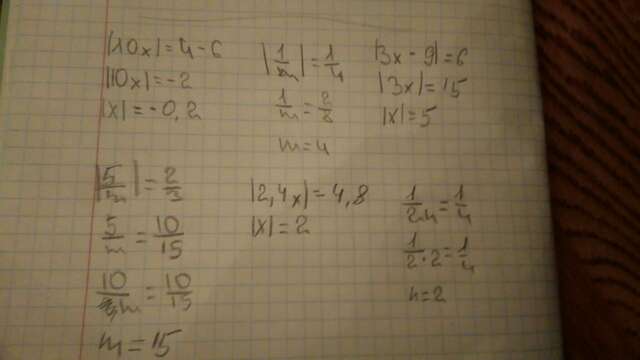 |10x|=4-6
|10x|=-2
|x|=-0,2
|1/m|=1/4
1/m=2/8
m=4
|3x-9|=6
|3x|=15
|x|=5
|5/m|=2/3
5/m=10/15
10/m=10/15
m=15
|2,4x|=4,8
|x|=2
1/2n=1/4
1/2·2=1/4
n=2